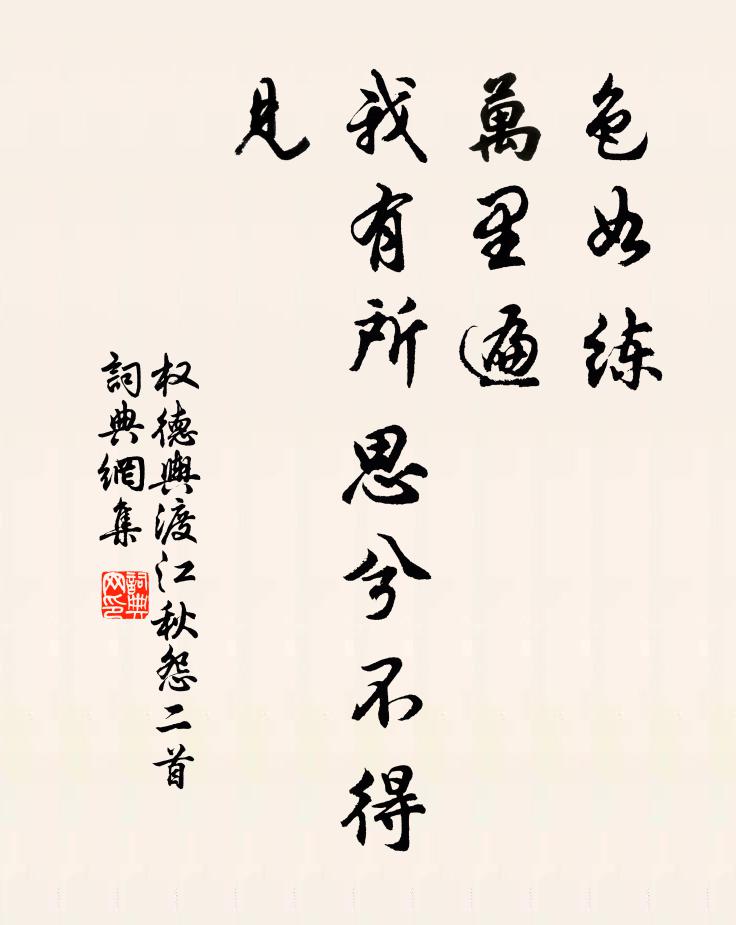 色如练
萬里遍
我有所思兮不得
見
权德輿渡江秋怨二首
詞典網集
詞典网印